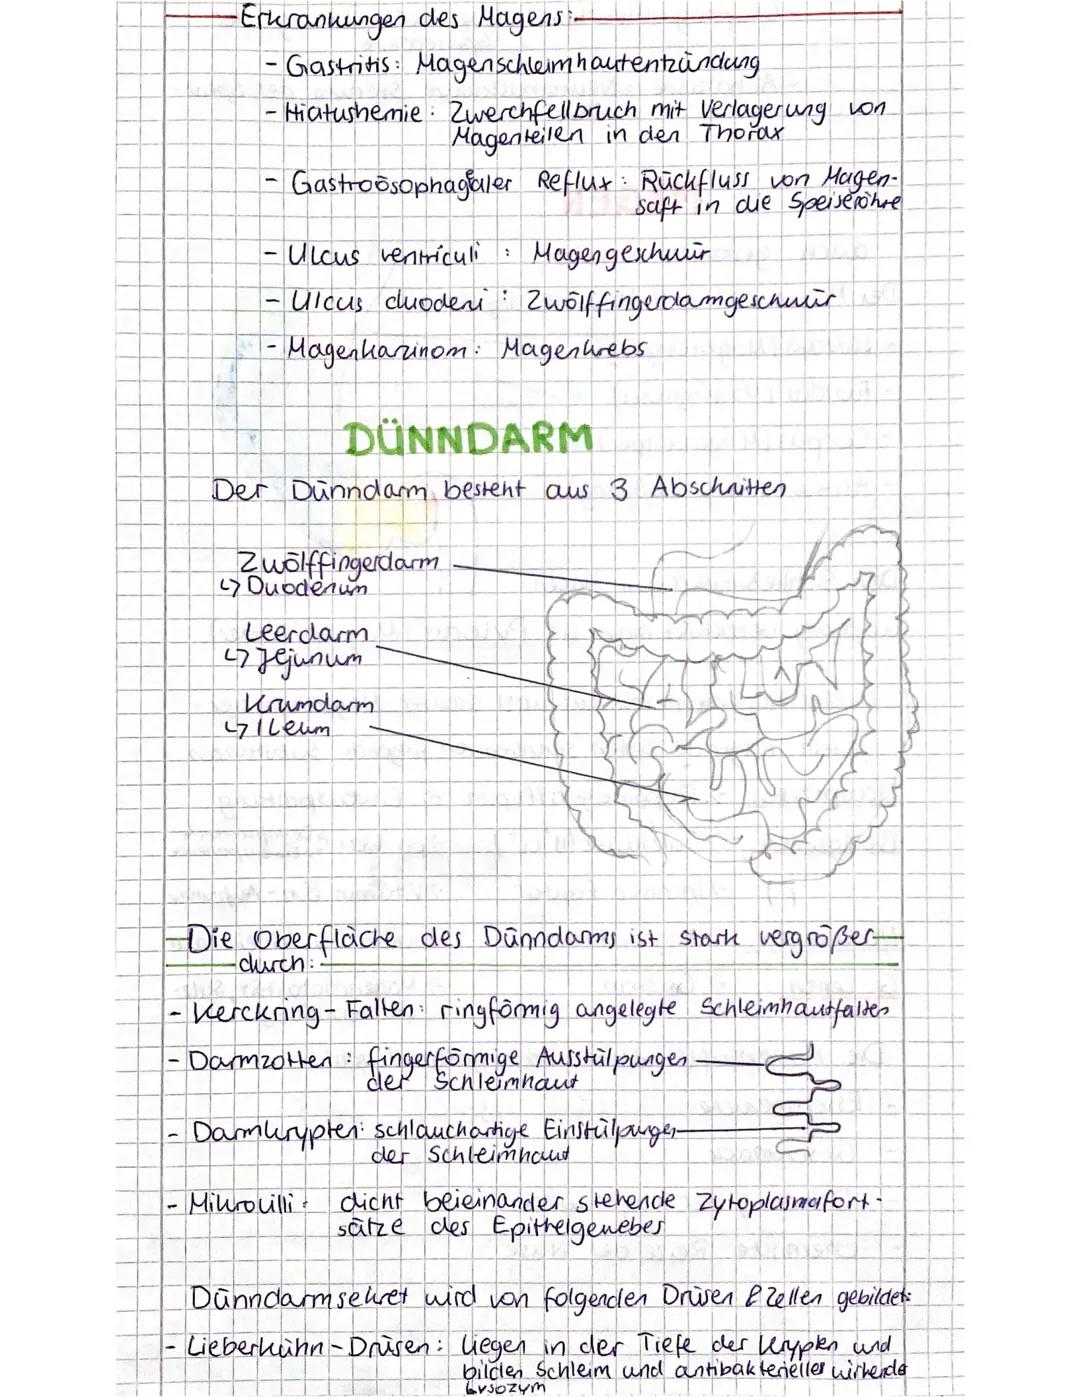 Erkrankungen des Magens:
- Gastritis: Magenschleimhautentzündung
- Hiatushernie: Zwerchfellbruch mit Verlagerung von
Magenteilen in den Thorax
- Gastroösophagaler Reflux: Rückfluss von Magen-
saft in die Speiseröhre
- Ulcus ventriculi: Magengeschwür
- Ulcus duodeni: Zwölffingerdarmgeschwür
- Magenkarzinom: Magenkrebs
DÜNNDARM
Der Dünndarm besteht aus 3 Abschnitten
Zwölffingerdarm
↳ Duodenum
Leerdarm
↳ Jejunum
Krumdarm
↳ Ileum
Die Oberfläche des Dünndarms ist stark vergrößer
durch:
- Kerckring-Falten: ringförmig angelegte Schleimhautfalten
- Darmzotten: fingerförmige Ausstülpungen
der Schleimhaut
- Darmkrypten: schlauchartige Einstülpungen
der Schleimhaut
- Mikrovilli: dicht beieinander stehende Zytoplasmafort-
sätze des Epithelgewebes
Dünndarmsekret wird von folgenden Drüsen & Zellen gebildet:
- Lieberkühn-Drüsen: liegen in der Tiefe der Krypten und
bilden Schleim und antibakterielles wirkende
Lysozym